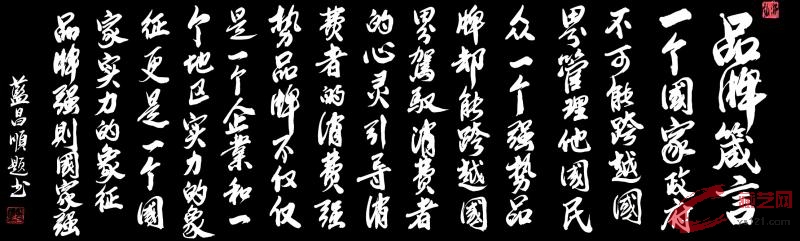 品牌箴言
一个國家政府
不可能跨越國
界管理他國民
众一个强势品
牌却能跨越國
界駕馭消費者
的心灵引导消
費者的消費强
势品牌不仅仅
是一个企業和一
个地区实力的象
征更是一个國
家实力的象征
品牌强则國家强
藍昌順题书
艺网